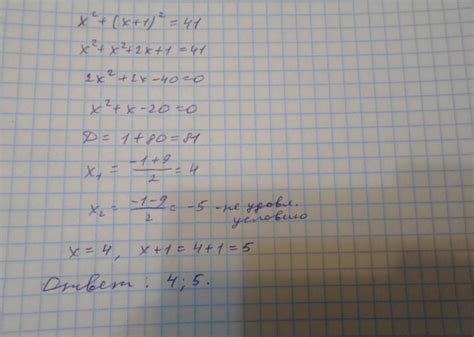 x² + (x+1)² = 41
x² + x² + 2x + 1 = 41
2x² + 2x - 40 = 0
x² + x - 20 = 0
D = 1 + 80 = 81
x₁ = (-1+9)/2 = 4
x₂ = (-1-9)/2 = -5 - не удовл. условию
x = 4, x+1 = 4+1 = 5
Ответ: 4; 5.